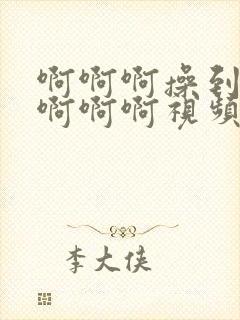 啊啊啊操到
啊啊啊視頻
李大侠